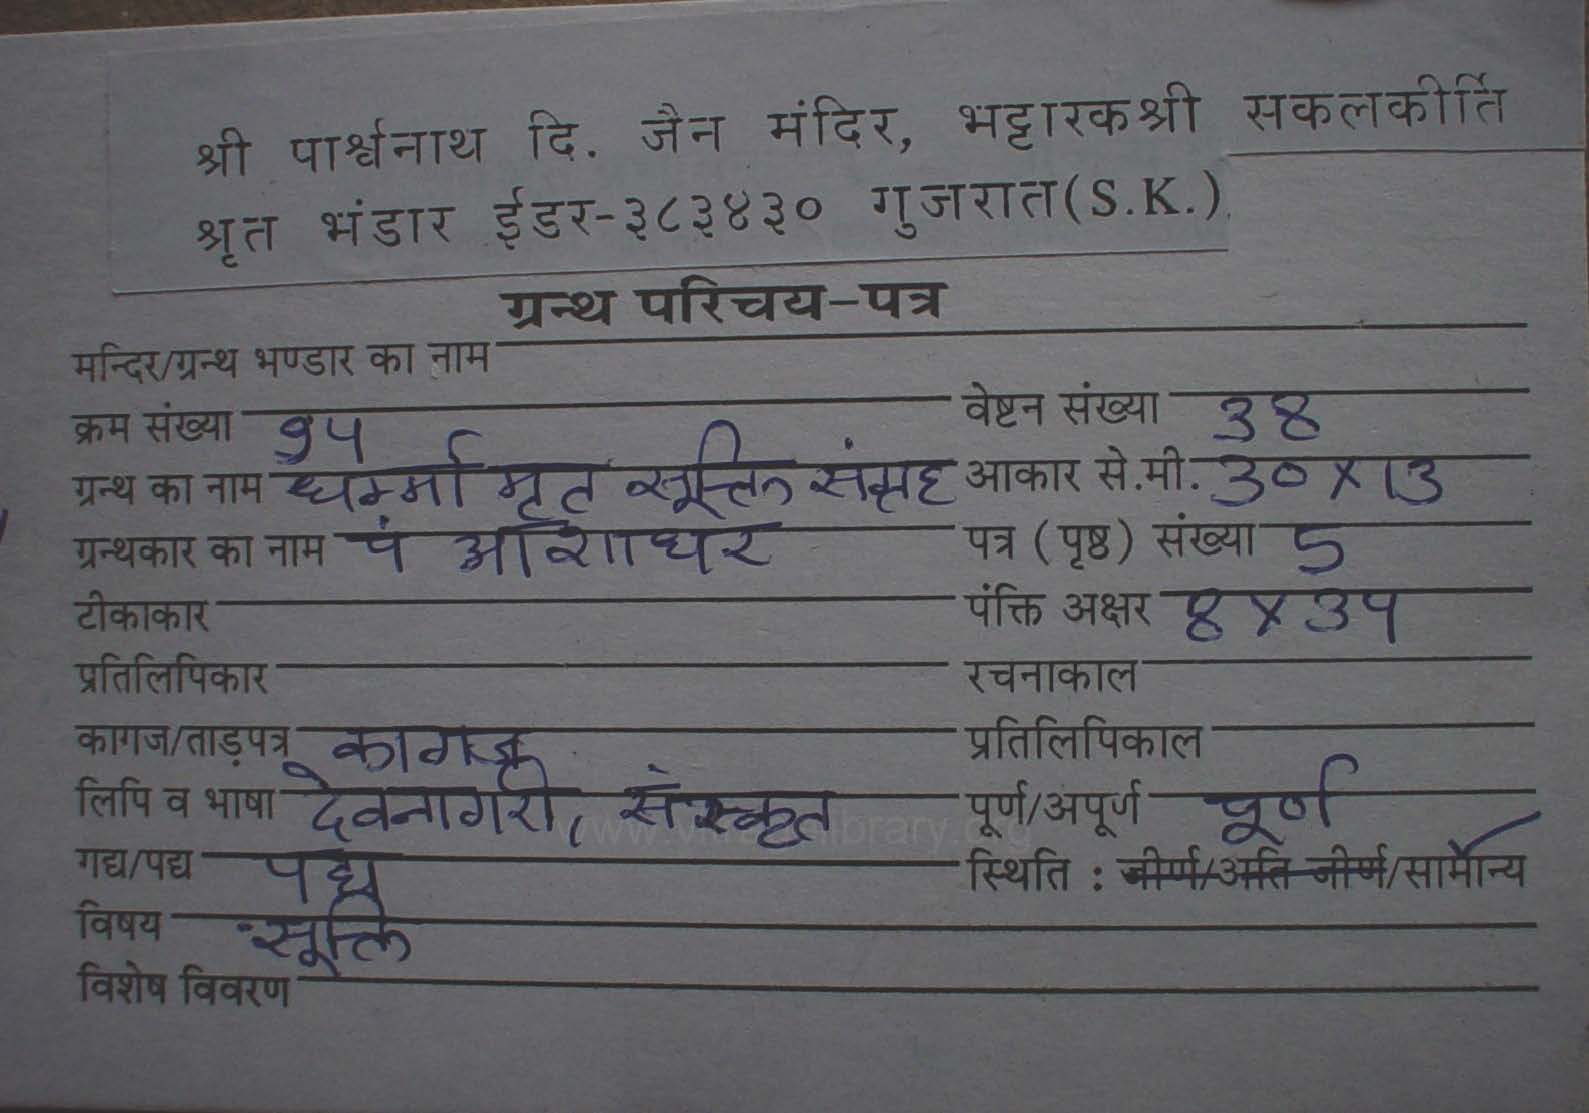 श्री पार्श्वनाथ दि. जैन मंदिर, भट्टारकश्री सकलकीर्ति
श्रृत भंडार ईडर-३८३४३० गुजरात(S.K.)
ग्रन्थ परिचय-पत्र
मन्दिर/ग्रन्थ भण्डार का नाम
क्रम संख्या 94 वेष्टन संख्या 38
ग्रन्थ का नाम धर्म्मामृत सूक्ति संग्रह आकार से.मी. 30 x 13
ग्रन्थकार का नाम पं आशाधर पत्र (पृष्ठ) संख्या 5
टीकाकार पंक्ति अक्षर 8 x 34
प्रतिलिपिकार रचनाकाल
कागज/ताड़पत्र कागज प्रतिलिपिकाल
लिपि व भाषा देवनागरी, संस्कृत पूर्ण/अपूर्ण पूर्ण
गद्य/पद्य पद्य स्थिति : जीर्ण/अति जीर्ण/सामान्य
विषय सूक्ति
विशेष विवरण